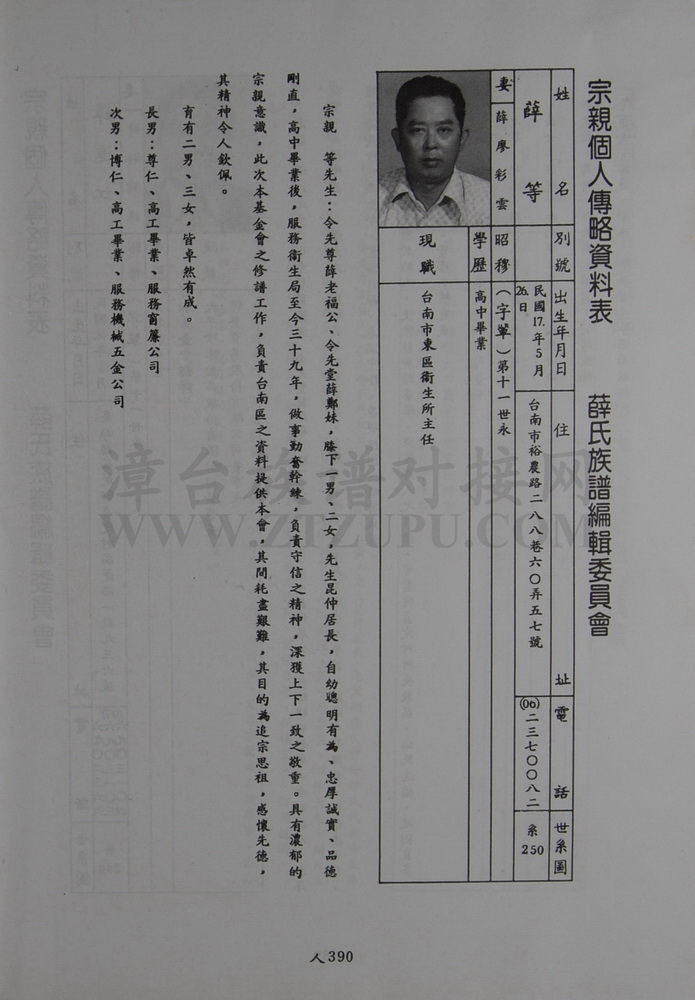 宗親個人傳略資料表　薛氏族譜編輯委員會
姓名　別號　出生年月日　住址　電話　世系圖
薛等　民國17.年5月26.日　台南市裕農路二八八巷六〇弄五七號　(06)二三七〇〇八二　系250
妻　薛廖彩雲　昭穆　(字輩)第十一世永
學歷　高中畢業
現職　台南市東區衛生所主任
宗親　等先生：令先尊薛老福公、令先堂薛鄭妹，膝下一男、二女，先生昆仲居長，自幼聰明有為、忠厚誠實、品德
剛直，高中畢業後，服務衛生局至今三十九年，做事勤奮幹練，負責守信之精神，深獲上下一致之敬重。具有濃郁的
宗親意識，此次本基金會之修譜工作，負責台南區之資料提供本會，其間耗盡艱難，其目的為追宗思祖，感懷先德，
其精神令人欽佩。
育有二男、三女，皆卓然有成。
長男：尊仁、高工畢業、服務窗簾公司
次男：博仁、高工畢業、服務機械五金公司
漳台族谱对接网
WWW.ZTZUPU.COM
人390